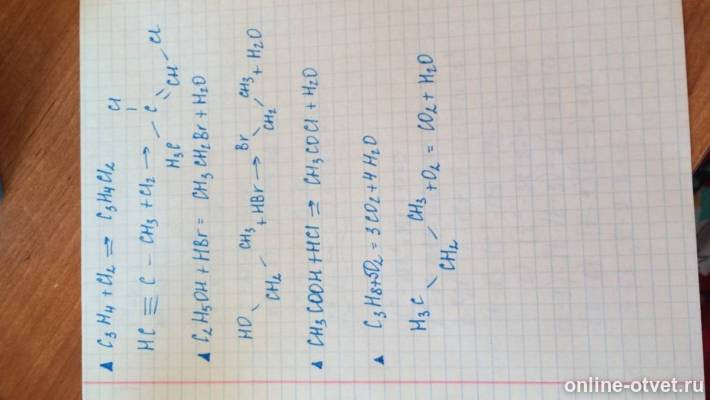 ▲ C₃H₄ + Cl₂ ⇒ C₃H₄Cl₂
Cl
HC ≡ C - CH₃ + Cl₂ → C = CH Cl
H₃C
▲ C₂H₅OH + HBr = CH₃CH₂Br + H₂O
HO CH₂ CH₃ + HBr → Br CH₂ CH₃ + H₂O
▲ CH₃COOH + HCl ⇒ CH₃COCl + H₂O
▲ C₃H₈ + 5O₂ = 3CO₂ + 4H₂O
H₃C CH₂ CH₃ + O₂ = CO₂ + H₂O
online-otvet.ru